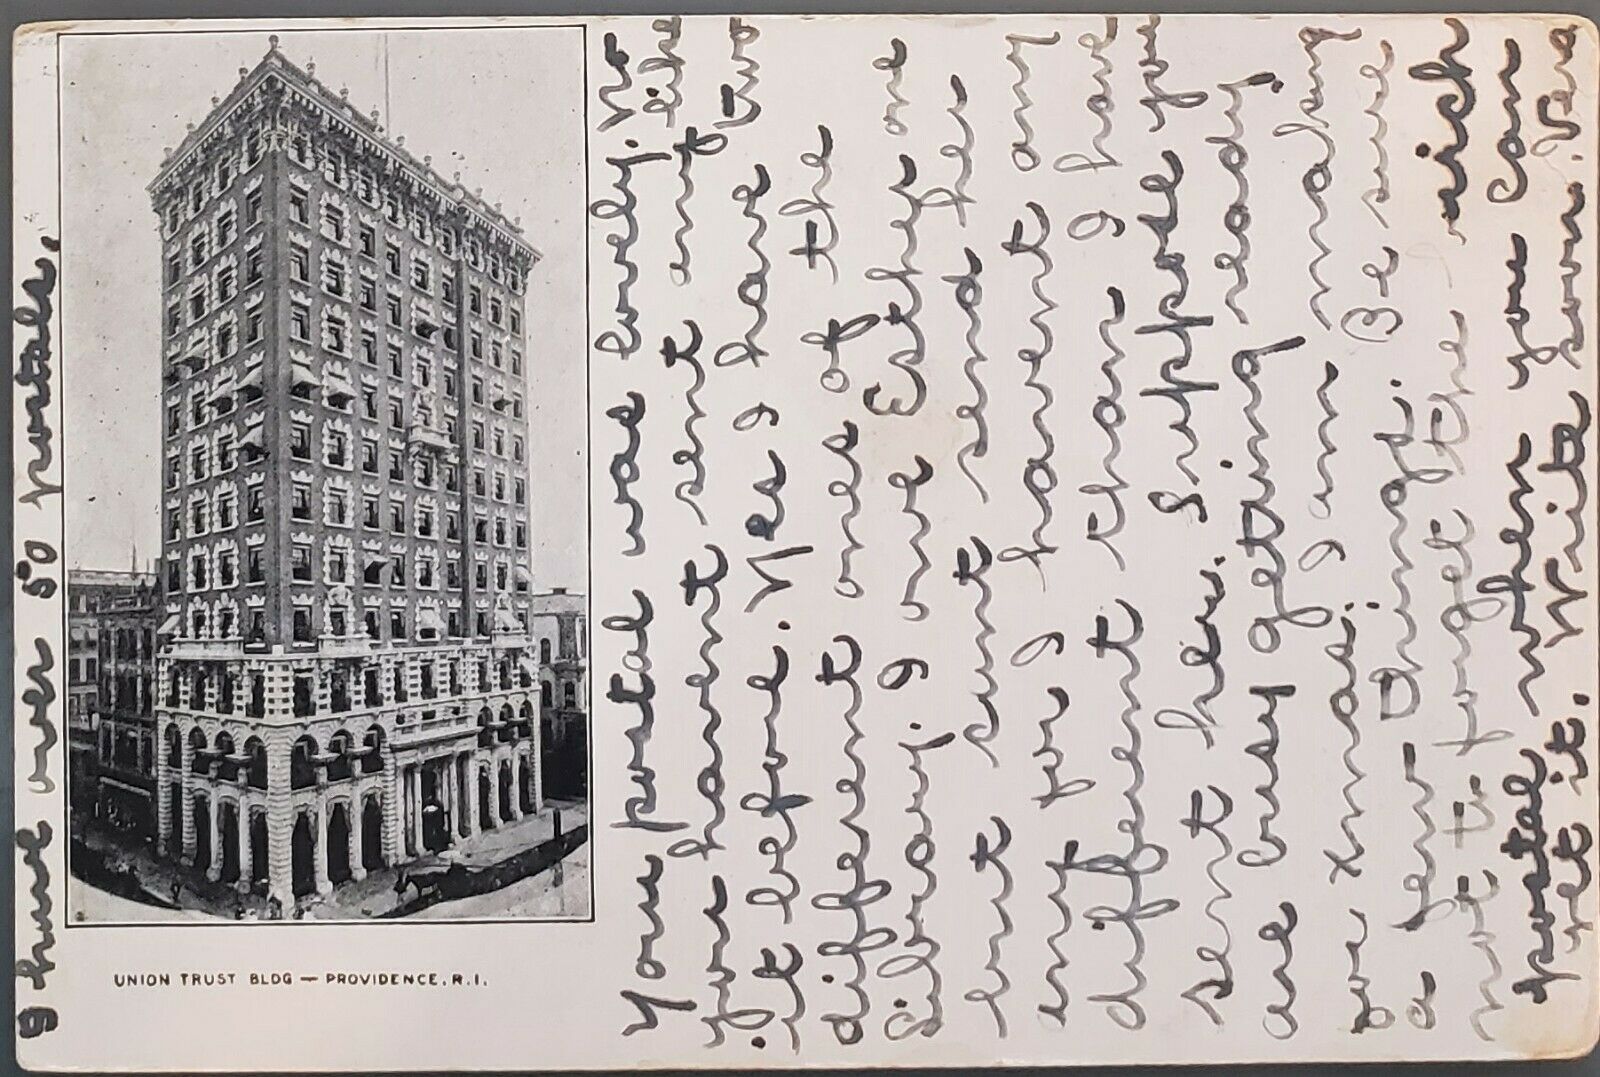 Your postal was lovely. No
you havent sent any like
it before. Yes I have two
different ones of the
Library. I owe Esther one
but just cant send her
any for I havent any
different than I have
sent her. Suppose you
are busy getting ready
for Xmas; I am making
a few things. Be sure
not to forget the rich
postal when you can
get it. Write soon. Vera
I have over 50 postals.
UNION TRUST BLDG — PROVIDENCE, R.I.